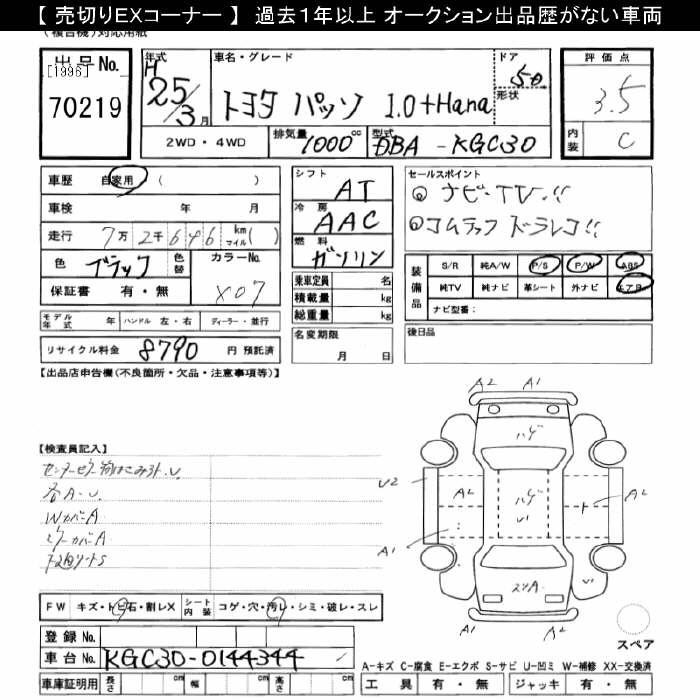 【 売切りEXコーナー 】 過去1年以上 オークション出品歴がない車両
(複合機)対応用紙
出品No.
[1996]
70219
年式
H 25/3月
車名・グレード
トヨタ パッソ 1.0+Hana
ドア
5D
形状
2WD・4WD
排気量
1000cc
型式
DBA-KGC30
評価点
3.5
内装
C
車歴 自家用 ( )
車検 年 月
走行 7万 2千 646 km マイル( )
色 ブラック 色替
カラーNo.
X07
保証書 有・無
モデル年式 年 ハンドル 左・右 ディーラー・並行
リサイクル料金 8790 円 預託済
シフト
AT
冷房
AAC
燃料
ガソリン
乗車定員 名
積載量 kg
総重量 kg
名変期限
月 日
セールスポイント
◎ナビ・TV!!
◎コムテック ドラレコ!!
装備品
S/R 純A/W P/S P/W ABS
純TV 純ナビ 革シート 外ナビ エアB
ナビ型番:
後日品
【出品店申告欄(不良箇所・欠品・注意事項等)】
【検査員記入】
各A・U
WカバーA
ミラーカバーA
A2 A1
ハゲ
U2
A2
ハゲ
U1
A2
A1
U1
A2 A1
スペア
FW キズ・トビ石・割レX シート内装 コゲ・穴・汚レ・シミ・破レ・スレ
登録No.
車台No. KGC30-0144344
A-キズ C-腐食 E-エクボ S-サビ U-凹ミ W-補修 XX-交換済
車庫証明用 長さ cm 幅 cm 高さ cm
工具 有・無 ジャッキ 有・無